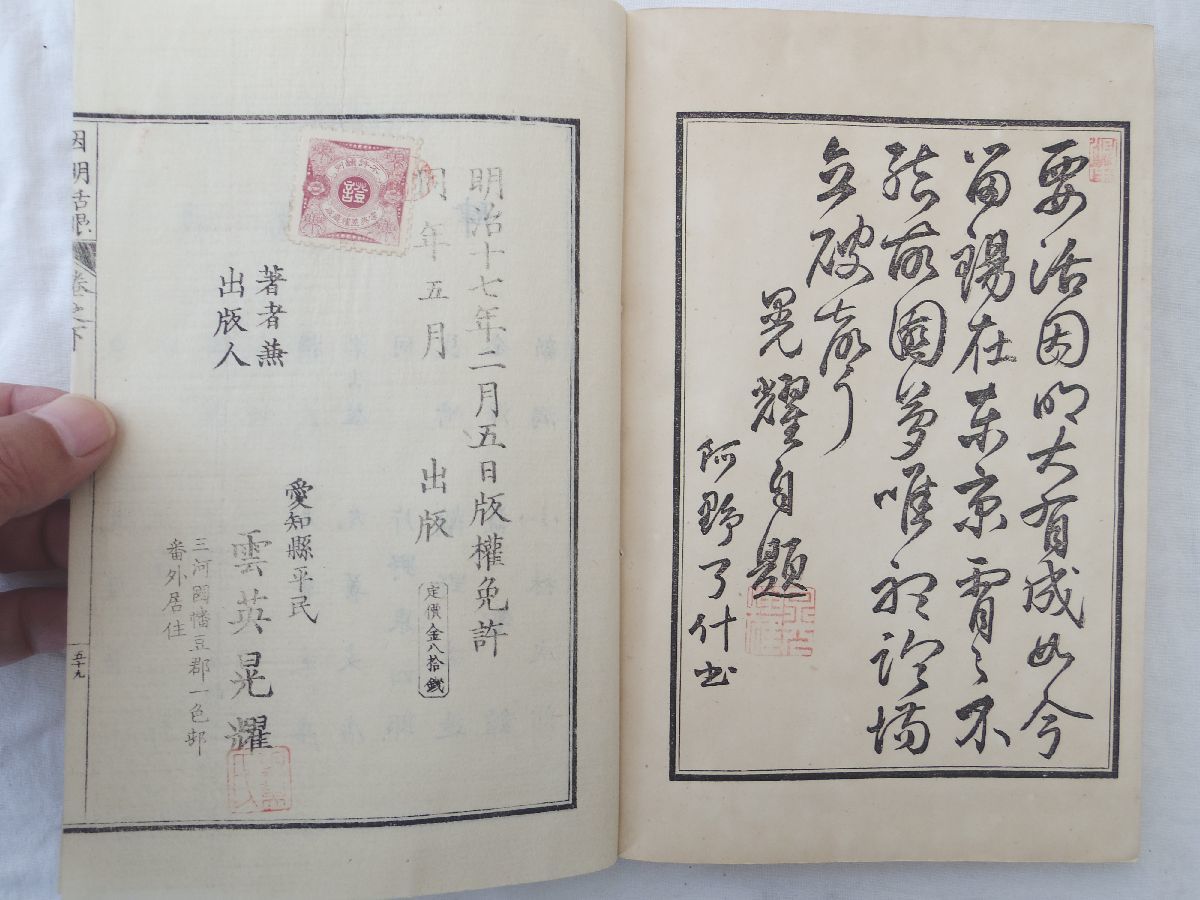 要活因明大有成如今
留錫在東京宵々不
結故園夢唯論場
立破
晃耀自題
阿野了什書
明治十七年二月五日版權免許
同年五月 出版 定價金八拾錢
證
著者兼
出版人
愛知縣平民
雲英晃耀
三河國幡豆郡一色邨
番外居住
因明活眼 卷之下 五十九